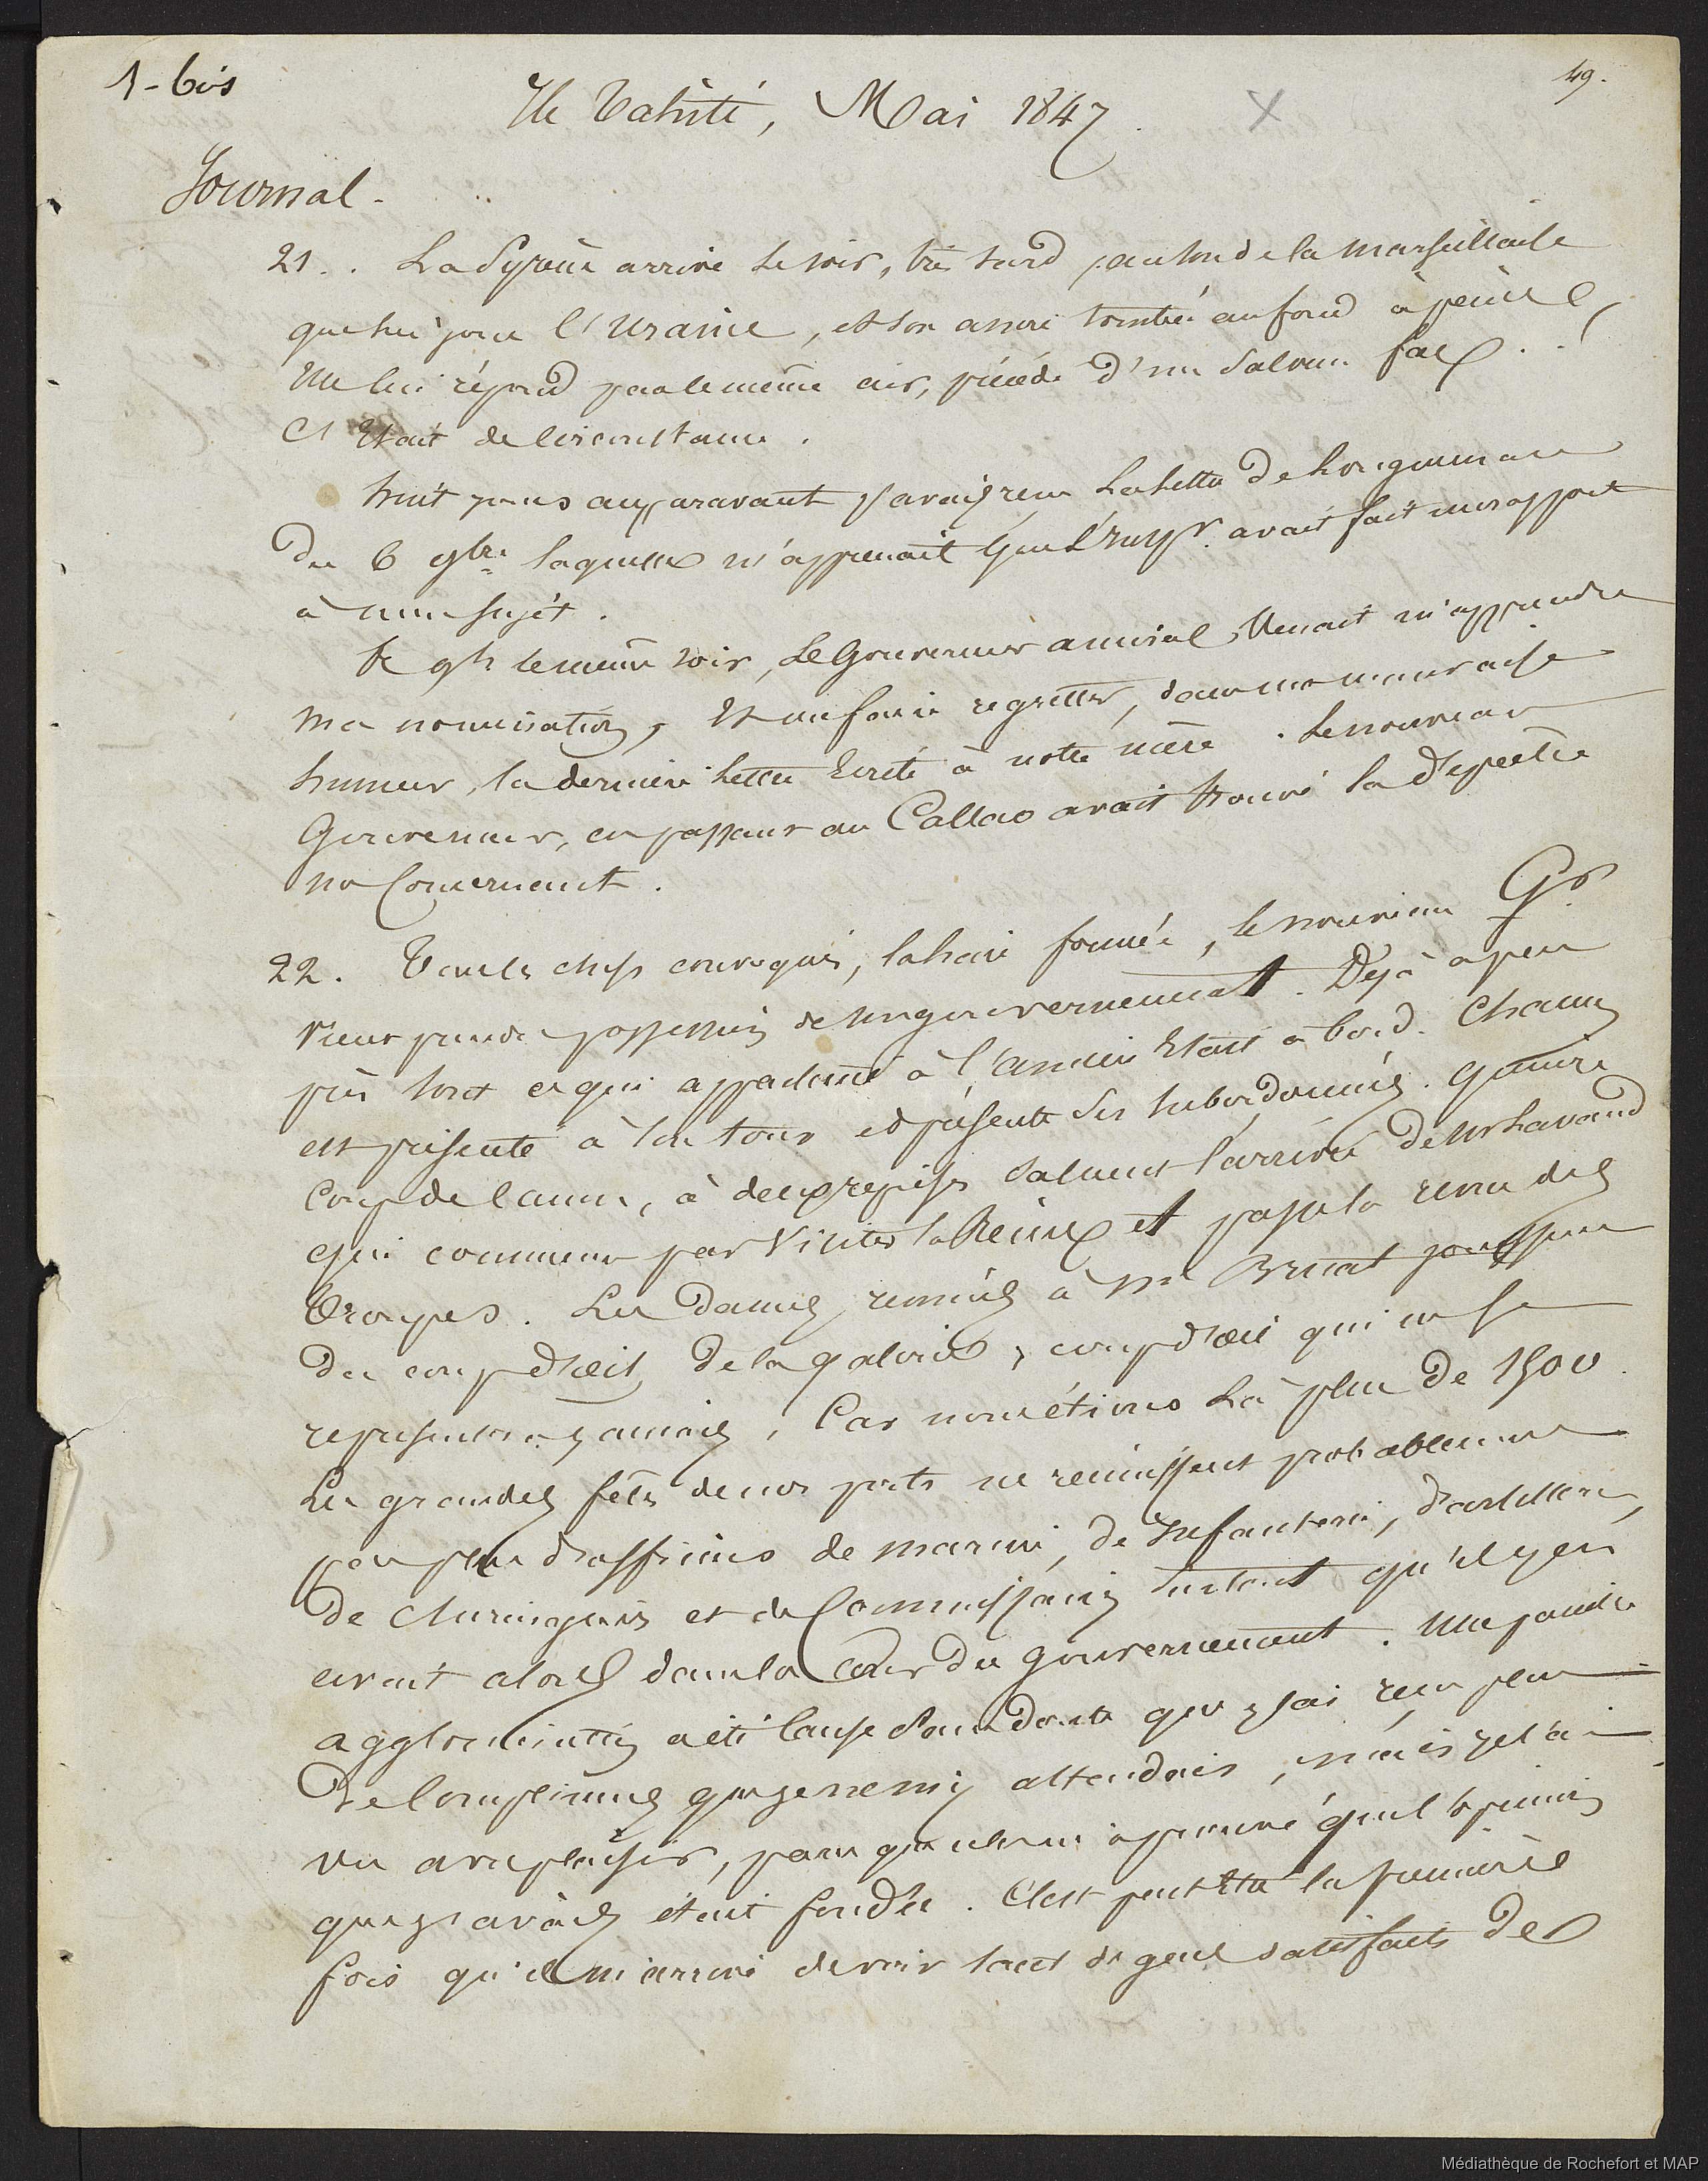 1-bis
49.
Ile Tahiti, Mai 1847.
Journal.
21.. La Syrène arrive le soir, très tard, au son de la marseillaise
que lui joue l'Uranie, et son ancre tombée au fond à peine,
elle lui répond par le même air, précédé d'un Salvum fac..
C'Etait de circonstance.
huit jours auparavant j'avais reçu la lettre de
du 6 9bre laquelle m'apprenait que l'Insp.r avait fait un rapport
à mon sujet.
le même soir, le Gouverneur amiral Venait m'apprendre
ma nomination, Et me faire regretter, dans ma mauvaise
humeur, la dernière lettre Ecrite à notre mère. Le nouveau
Gouverneur, en passant au Callao avait trouvé la dépêche
me Concernant.
22. Tous les chefs convoqués, la haie formée, le nouveau Gr.
vient prendre possession de son gouvernement. Déjà à peu
près tout ce qui appartenait à l'ancien Etait à bord. Chacun
est présenté à son tour et présente ses subordonnés. quinze
coups de canon, à deux reprises saluent l'arrivée de Mr Lavaud
qui commence par Visiter la Reine et passe la revue des
Troupes. Les Dames, réunies à Me Bruat jouissent
du coup d'œil de la galerie, coup d'œil qui ne se
représentera jamais, Car nous étions là plus de 1500.
Les grandes fêtes de nos ports ne réunissent probablement
pas plus d'officiers de marine, de Infanterie, d'artillerie,
De Chirurgiens et de Commissaires surtout qu'il y en
avait alors dans la Cour du gouvernement. Une pareille
agglomération a été Cause sans doute que j'ai reçu peu
De Complimens que je ne m'y attendais, mais je l'ai
vu avec plaisir, parce que cela m'a prouvé que l'opinion
que j'avais était fondée. C'est peut Etre la première
fois qu'il m'arrive de voir tant de gens satisfaits de
Médiathèque de Rochefort et MAP